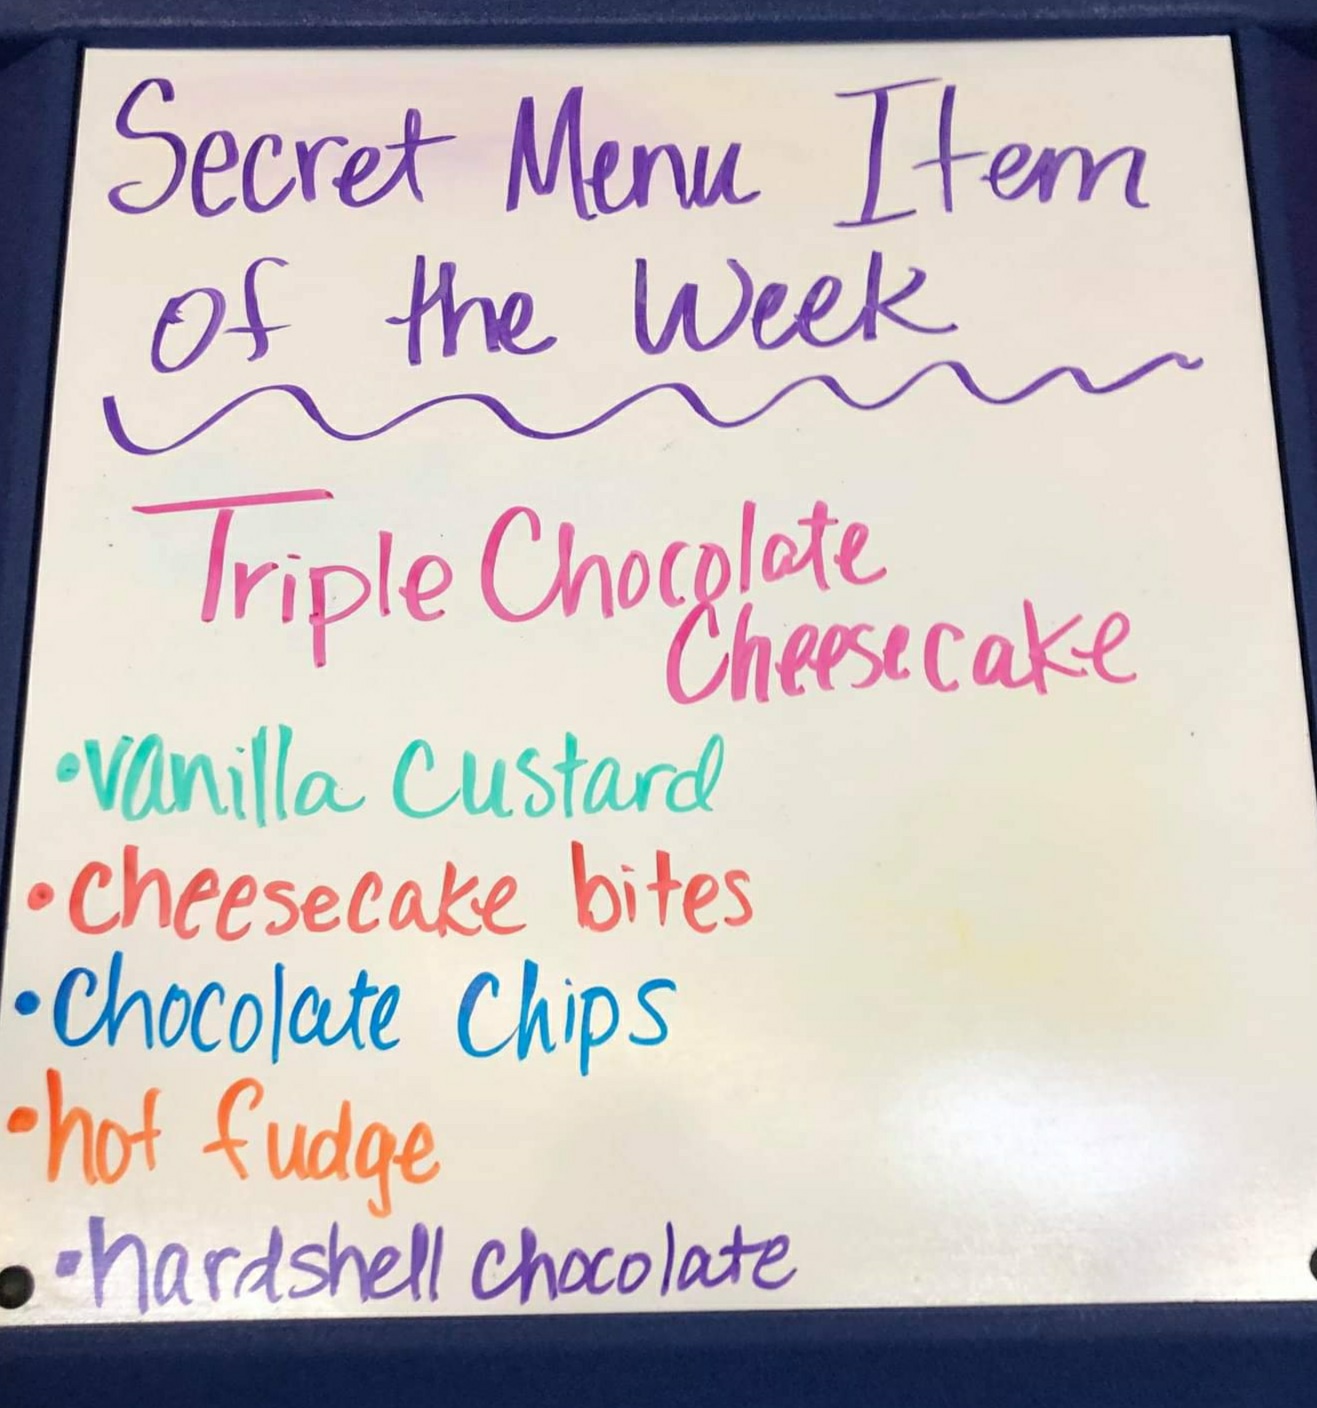 Secret Menu Item
of the Week
Triple Chocolate
Cheesecake
•vanilla custard
•cheesecake bites
•Chocolate Chips
•hot fudge
•hardshell chocolate